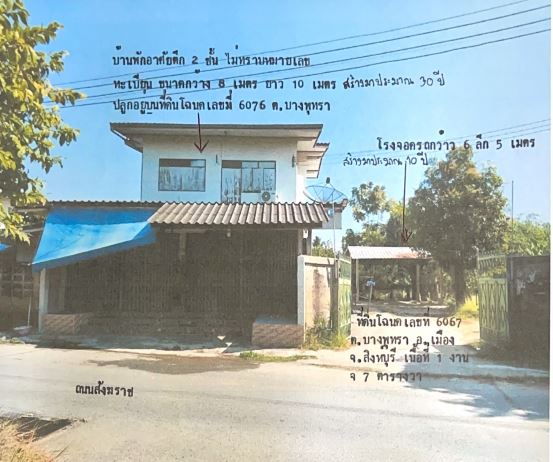 บ้านพักอาศัยตึก 2 ชั้น ไม่ทราบหมายเลข
ทะเบียน ขนาดกว้าง 8 เมตร ยาว 10 เมตร สร้างมาประมาณ 30 ปี
ปลูกอยู่บนที่ดินโฉนดเลขที่ 6076 ต.บางพุทรา
โรงจอดรถกว้าง 6 ลึก 5 เมตร
สร้างมาประมาณ 10 ปี
ที่ดินโฉนดเลขที่ 6067
ต.บางพุทรา อ.เมือง
จ.สิงห์บุรี เนื้อที่ 1 งาน
7 ตารางวา
ถนนสังฆราช